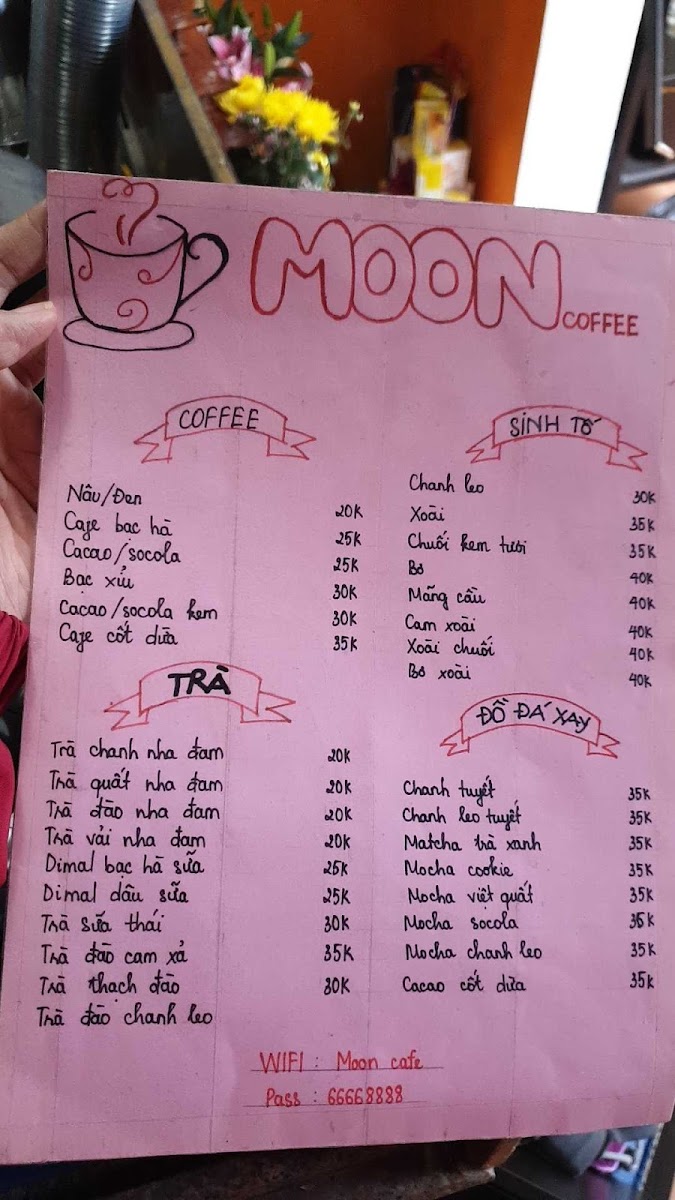 MOON COFFEE
COFFEE
Nâu/Đen 20K
Cafe bạc hà 25K
Cacao/socola 25K
Bạc xỉu 30K
Cacao/socola kem 30K
Cafe cốt dừa 35K
TRÀ
Trà chanh nha đam 20K
Trà quất nha đam 20K
Trà đào nha đam 20K
Trà vải nha đam 20K
Dimal bạc hà sữa 25K
Dimal dâu sữa 25K
Trà sữa thái 30K
Trà đào cam xả 35K
Trà thạch đào 30K
Trà đào chanh leo
SINH TỐ
Chanh leo 30K
Xoài 35K
Chuối kem tươi 35K
Bơ 40K
Mãng cầu 40K
Cam xoài 40K
Xoài chuối 40K
Bơ xoài 40K
ĐỒ ĐÁ XAY
Chanh tuyết 35K
Chanh leo tuyết 35K
Matcha trà xanh 35K
Mocha cookie 35K
Mocha việt quất 35K
Mocha socola 35K
Mocha chanh leo 35K
Cacao cốt dừa 35K
WIFI : Moon cafe
Pass : 66668888